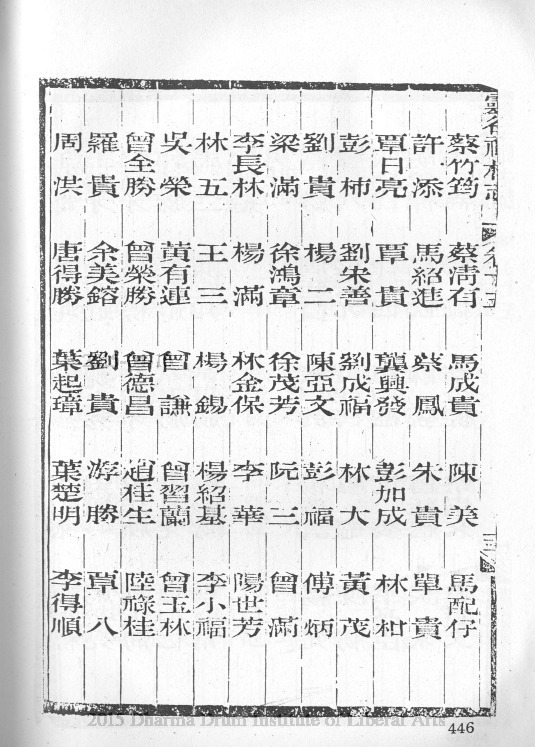 蔡竹筠　蔡清有　馬成貴　陳美　馬配仔
許添　馬紹進　蔡鳳　朱貴　單貴
覃日亮　覃貴　龔興發　彭加成　林柑
彭柿　劉朱善　劉成福　林大　黃茂
劉貴　楊二　陳亞文　彭福　傅炳
梁滿　徐鴻章　徐茂芳　阮三　曾滿
李長林　楊滿　林金保　李華　陽世芳
林五　王三　楊錫　楊紹基　李小福
吳榮　黃有連　曾謙　曾習蘭　曾玉林
曾全勝　曾榮勝　曾德昌　趙桂生　陸祿桂
羅貴　余美鎔　劉貴　游勝　覃八
周洪　唐得勝　葉起璋　葉楚明　李得順
2015 Dharma Drum Institute of Liberal Arts
446